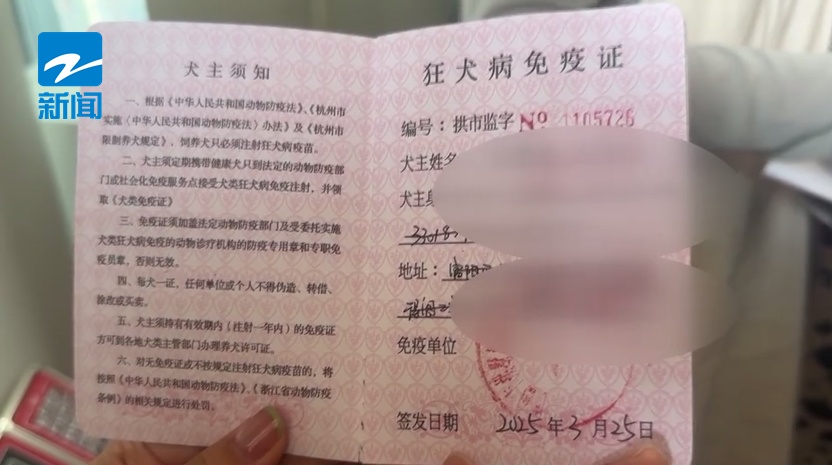 新闻
犬主须知
一、根据《中华人民共和国动物防疫法》、《杭州市
实施〈中华人民共和国动物防疫法〉办法》及《杭州市
限制养犬规定》，饲养犬只必须注射狂犬病疫苗。
二、犬主须定期携带健康犬只到法定的动物防疫部
门或社会化免疫服务点接受犬类狂犬病免疫注射，并领
取《犬类免疫证》
三、免疫证须加盖法定动物防疫部门及受委托实施
犬类狂犬病免疫的动物诊疗机构的防疫专用章和专职免
疫员章，否则无效。
四、每犬一证，任何单位或个人不得伪造、转借、
涂改或买卖。
五、犬主须持有有效期内（注射一年内）的免疫证
方可到各地犬类主管部门办理养犬许可证。
六、对无免疫证或不按规定注射狂犬病疫苗的，将
按照《中华人民共和国动物防疫法》、《浙江省动物防疫
条例》的相关规定进行处罚。
狂犬病免疫证
编号：拱市监字 No 1105726
犬主姓名
犬主身
地址：富阳
免疫单位
签发日期 2025年3月25日